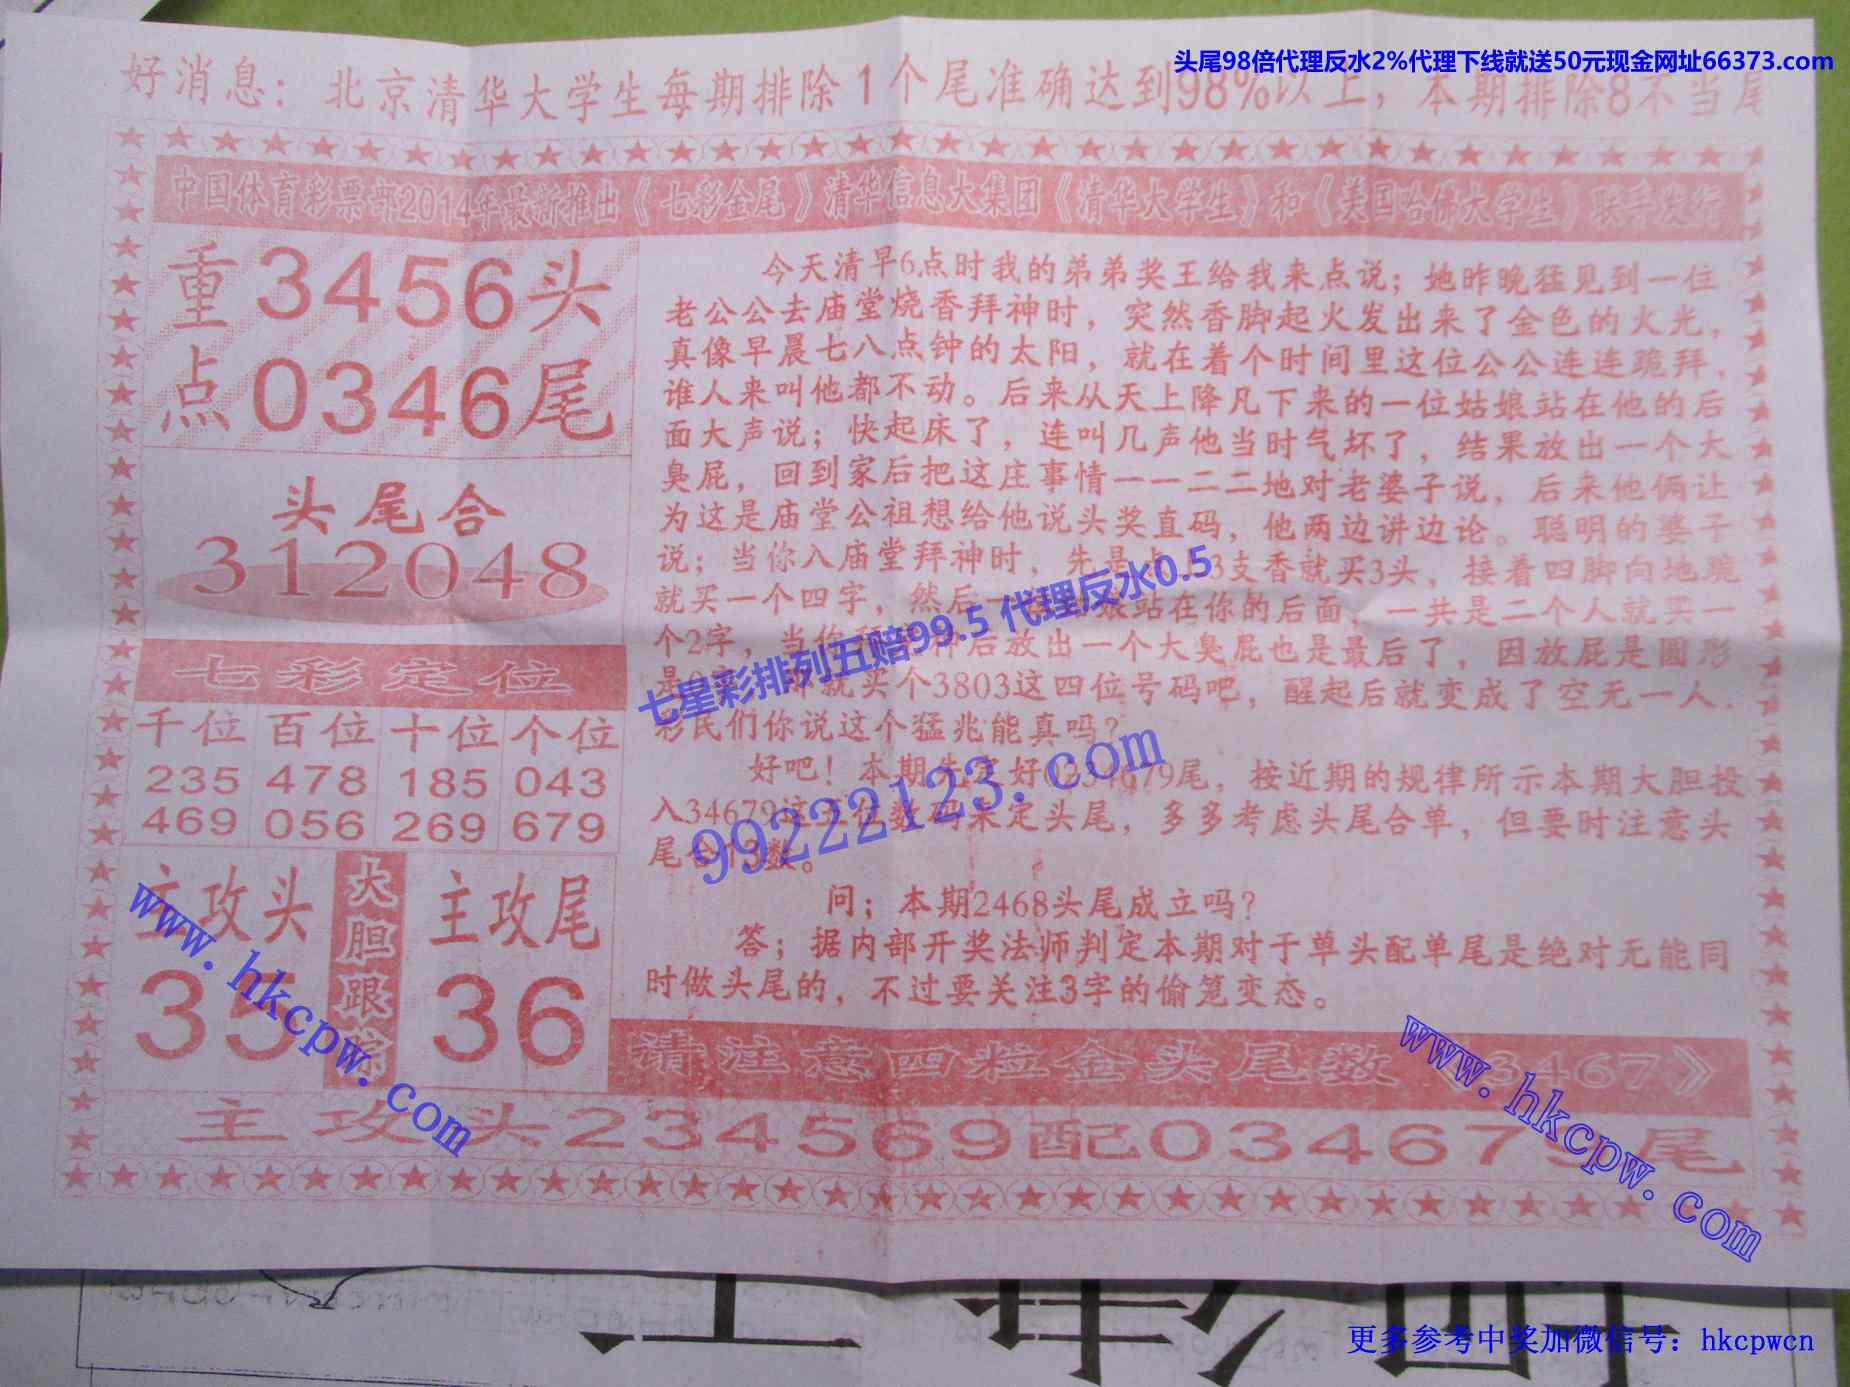 头尾98倍代理反水2%代理下线就送50元现金网址66373.com
好消息：北京清华大学生每期排除1个尾准确达到98%以上，本期排除8不当尾
中国体育彩票部2014年最新推出《七彩金尾》清华信息大集团《清华大学生》和《美国哈佛大学生》联手发行
重3456头
点0346尾
头尾合
312048
七彩定位
千位 百位 十位 个位
235 478 185 043
469 056 269 679
主攻头
35
大胆跟
主攻尾
36
今天清早6点时我的弟弟奖王给我来点说；她昨晚猛见到一位
老公公去庙堂烧香拜神时，突然香脚起火发出来了金色的火光，
真像早晨七八点钟的太阳，就在着个时间里这位公公连连跪拜，
谁人来叫他都不动。后来从天上降凡下来的一位姑娘站在他的后
面大声说；快起床了，连叫几声他当时气坏了，结果放出一个大
臭屁，回到家后把这庄事情一一二二地对老婆子说，后来他俩让
为这是庙堂公祖想给他说头奖直码，他两边讲边论。聪明的婆子
说；当你入庙堂拜神时，先是点 3支香就买3头，接着四脚向地跪
就买一个四字，然后一 娘站在你的后面，一共是二个人就买一
个2字，当你 后放出一个大臭屁也是最后了，因放屁是圆形
是0 就买个3803这四位号码吧，醒起后就变成了空无一人．
彩民们你说这个猛兆能真吗？
好吧！本期先定好 34679尾，按近期的规律所示本期大胆投
入34679这五位数码来定头尾，多多考虑头尾合单，但要时注意头
尾合 数。
问；本期2468头尾成立吗？
答；据内部开奖法师判定本期对于单头配单尾是绝对无能同
时做头尾的，不过要关注3字的偷笼变态。
请注意四粒金头尾数《3467》
主攻头234569配034679尾
七星彩排列五赔99.5 代理反水0.5
99222123.com
www.hkcpw.com
www.hkcpw.com
更多参考中奖加微信号：hkcpwcn